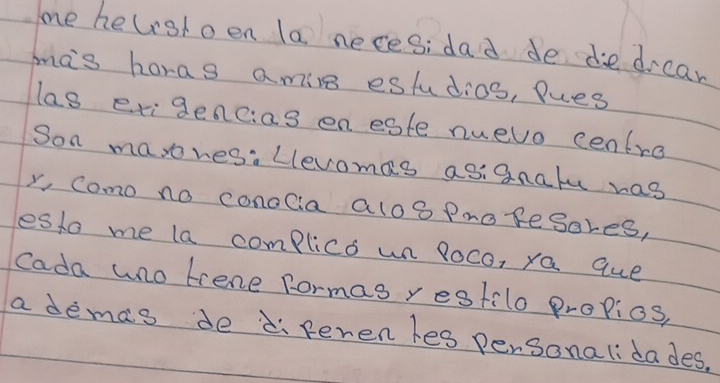 me he visto en la necesidad de diedicar
más horas a mis estudios, pues
las exigencias en este nuevo centro
son mayores: Llevo más asignaturas
y, como no conocia a los profesores,
esto me la complicó un poco, ya que
cada uno tiene formas y estilo propios,
a demás de diferentes personalidades.